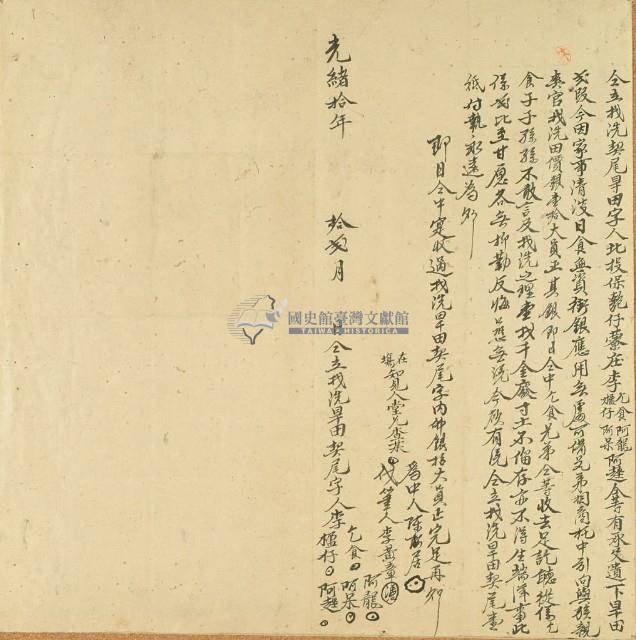 仝立找洗契尾旱田字人北投保藔仔藔庄李乞食阿龍櫃仔阿呆阿趕仝等有承父遺下旱田
叐叚今因家事清淡日食無資乏銀應用無處可借兄弟相商托中引向與族親
奕官找洗田價銀拾大員正其銀即日仝中乞食兄弟仝等收去足訖聽從
食子子孫孫不敢言及找洗之理查找千金廢寸土不留存亦不得生端滋事此
係至甘愿各無抑勒反悔恐口無憑今欲有憑仝立找洗旱田契尾壹
紙付執永遠為炤
即日仝中寔收過找洗旱田契尾字內佛銀拾大員正完足再炤
為中人陳居
在場知見人堂兄李
代筆人李黃章
光緒拾年 拾弍月 日仝立找洗旱田契尾字人李乞食阿龍櫃仔阿呆阿趕
國史館臺灣文獻館
TAIWAN HISTORICA